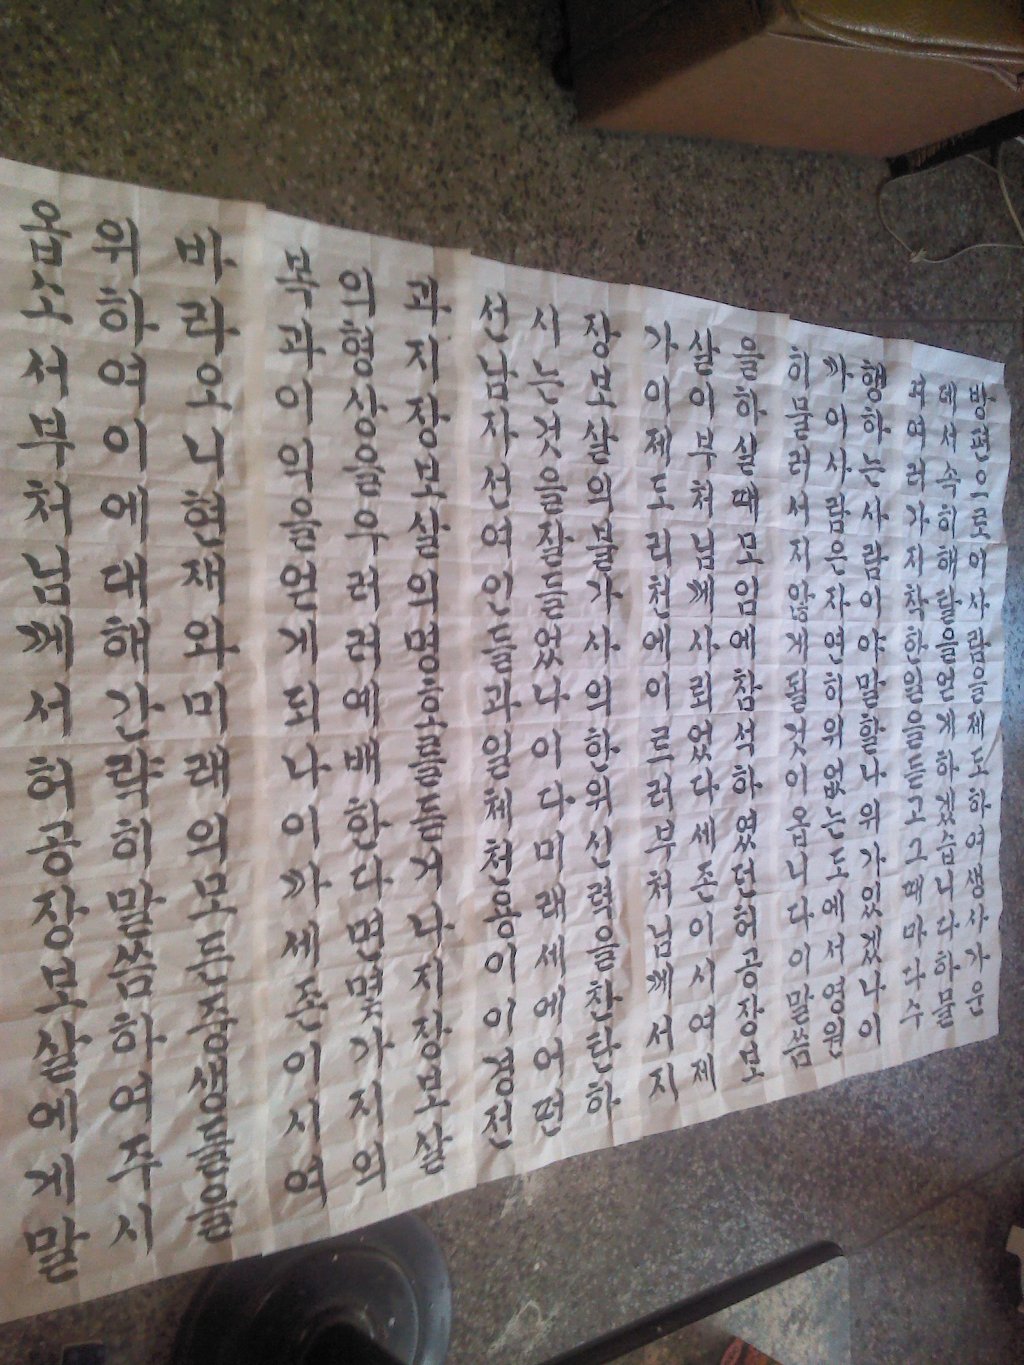 방편으로이사람을제도하여생사가운
데서속히해탈을얻게하겠습니다하물
며여러가지착한일을듣고그때마다수
행하는사람이야말할나위가있겠나이
까이사람은자연히위없는도에서영원
히물러서지않게될것이옵니다이말씀
을하실때모임에참석하였던허공장보
살이부처님께사뢰었다세존이시여제
가이제도리천에이르러부처님께서지
장보살의불가사의한위신력을찬탄하
시는것을잘들었다이다미래세에어떤
선남자선여인들과일체천룡이이경전
과지장보살의명호를듣거나지장보살
의형상을우러러예배한다면몇가지의
복과이익을얻게되나이까세존이시여
바라오니현재와미래의모든중생들을
위하여이에대해간략히말씀하여주시
옵소서부처님께서허공장보살에게말